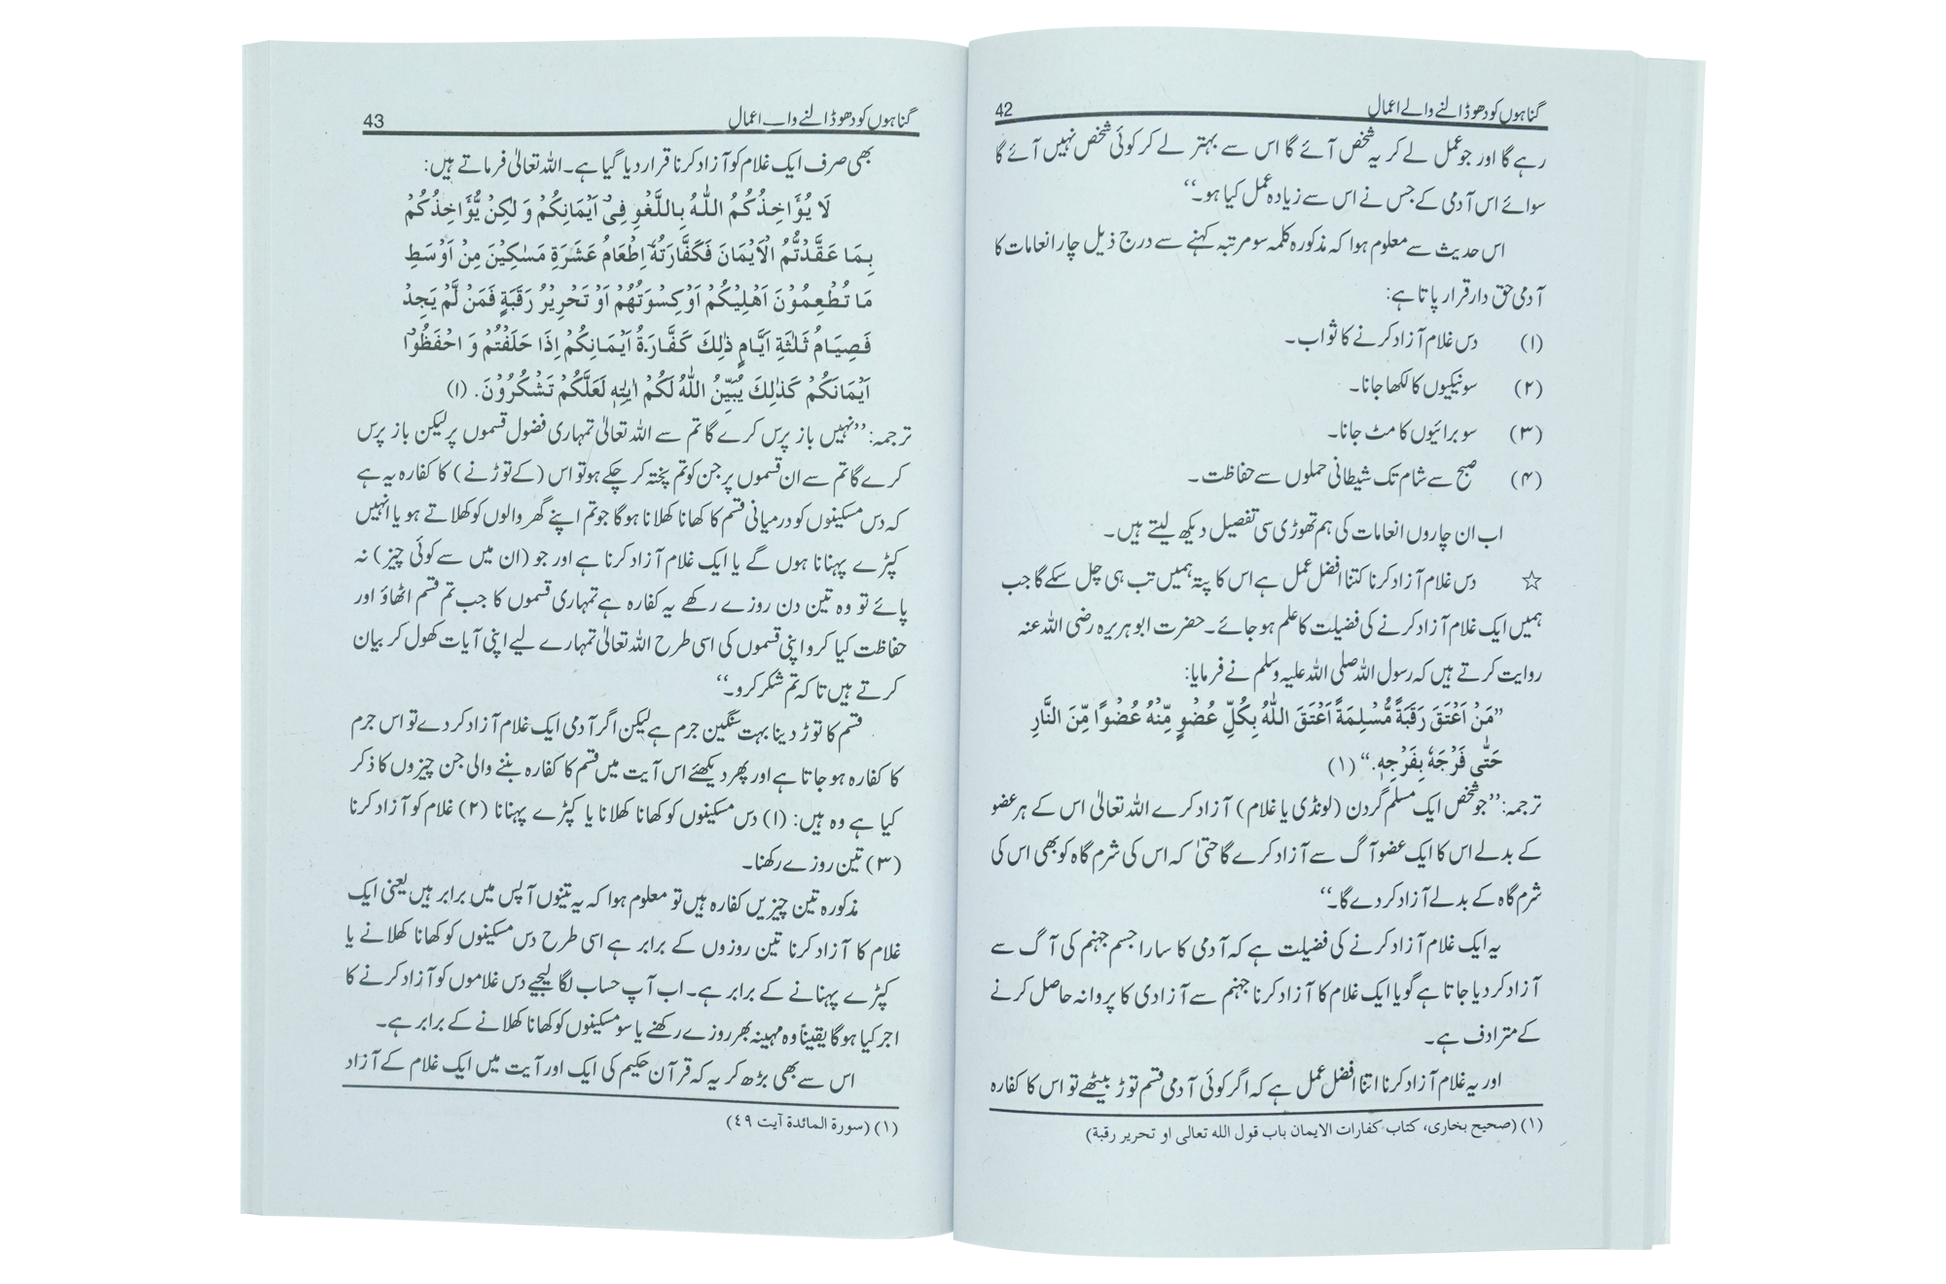 گناہوں کو دھو ڈالنے والے اعمال 42
رہے گا اور جو عمل لے کر یہ شخص آئے گا اس سے بہتر لے کر کوئی شخص نہیں آئے گا
سوائے اس آدمی کے جس نے اس سے زیادہ عمل کیا ہو۔‘‘
اس حدیث سے معلوم ہوا کہ مذکورہ کلمہ سو مرتبہ کہنے سے درج ذیل چار انعامات کا
آدمی حق دار قرار پاتا ہے:
(۱) دس غلام آزاد کرنے کا ثواب۔
(۲) سو نیکیوں کا لکھا جانا۔
(۳) سو برائیوں کا مٹ جانا۔
(۴) صبح سے شام تک شیطانی حملوں سے حفاظت۔
اب ان چاروں انعامات کی ہم تھوڑی سی تفصیل دیکھ لیتے ہیں۔
☆ دس غلام آزاد کرنا کتنا افضل عمل ہے اس کا پتہ ہمیں تب ہی چل سکے گا جب
ہمیں ایک غلام آزاد کرنے کی فضیلت کا علم ہو جائے۔ حضرت ابو ہریرہ رضی اللہ عنہ
روایت کرتے ہیں کہ رسول اللہ صلی اللہ علیہ وسلم نے فرمایا:
”مَنْ اَعْتَقَ رَقَبَةً مُّسْلِمَةً اَعْتَقَ اللّٰهُ بِكُلِّ عُضْوٍ مِّنْهُ عُضْوًا مِّنَ النَّارِ
حَتّٰى فَرْجَهٗ بِفَرْجِهٖ.“ (۱)
ترجمہ: ’’جو شخص ایک مسلم گردن (لونڈی یا غلام) آزاد کرے اللہ تعالیٰ اس کے ہر عضو
کے بدلے اس کا ایک عضو آگ سے آزاد کرے گا حتیٰ کہ اس کی شرم گاہ کو بھی اس کی
شرم گاہ کے بدلے آزاد کر دے گا۔‘‘
یہ ایک غلام آزاد کرنے کی فضیلت ہے کہ آدمی کا سارا جسم جہنم کی آگ سے
آزاد کر دیا جاتا ہے گویا ایک غلام کا آزاد کرنا جہنم سے آزادی کا پروانہ حاصل کرنے
کے مترادف ہے۔
اور یہ غلام آزاد کرنا اتنا افضل عمل ہے کہ اگر کوئی آدمی قسم توڑ بیٹھے تو اس کا کفارہ
(۱) (صحيح بخاری، كتاب كفارات الايمان باب قول الله تعالى او تحرير رقبة)
گناہوں کو دھو ڈالنے والے اعمال 43
بھی صرف ایک غلام کو آزاد کرنا قرار دیا گیا ہے۔ اللہ تعالیٰ فرماتے ہیں:
لَا يُؤَاخِذُكُمُ اللّٰهُ بِاللَّغْوِ فِىْٓ اَيْمَانِكُمْ وَ لٰكِنْ يُّؤَاخِذُكُمْ
بِمَا عَقَّدْتُّمُ الْاَيْمَانَ فَكَفَّارَتُهٗٓ اِطْعَامُ عَشَرَةِ مَسٰكِيْنَ مِنْ اَوْسَطِ
مَا تُطْعِمُوْنَ اَهْلِيْكُمْ اَوْ كِسْوَتُهُمْ اَوْ تَحْرِيْرُ رَقَبَةٍ فَمَنْ لَّمْ يَجِدْ
فَصِيَامُ ثَلٰثَةِ اَيَّامٍ ذٰلِكَ كَفَّارَةُ اَيْمَانِكُمْ اِذَا حَلَفْتُمْ وَ احْفَظُوْٓا
اَيْمَانَكُمْ كَذٰلِكَ يُبَيِّنُ اللّٰهُ لَكُمْ اٰيٰتِهٖ لَعَلَّكُمْ تَشْكُرُوْنَ. (۱)
ترجمہ: ’’نہیں باز پرس کرے گا تم سے اللہ تعالیٰ تمہاری فضول قسموں پر لیکن باز پرس
کرے گا تم سے ان قسموں پر جن کو تم پختہ کر چکے ہو تو اس (کے توڑنے) کا کفارہ یہ ہے
کہ دس مسکینوں کو درمیانی قسم کا کھانا کھلانا ہو گا جو تم اپنے گھر والوں کو کھلاتے ہو یا انہیں
کپڑے پہنانا ہوں گے یا ایک غلام آزاد کرنا ہے اور جو (ان میں سے کوئی چیز) نہ
پائے تو وہ تین دن روزے رکھے یہ کفارہ ہے تمہاری قسموں کا جب تم قسم اٹھاؤ اور
حفاظت کیا کرو اپنی قسموں کی اسی طرح اللہ تعالیٰ تمہارے لیے اپنی آیات کھول کر بیان
کرتے ہیں تا کہ تم شکر کرو۔‘‘
قسم کا توڑ دینا بہت سنگین جرم ہے لیکن اگر آدمی ایک غلام آزاد کر دے تو اس جرم
کا کفارہ ہو جاتا ہے اور پھر دیکھئے اس آیت میں قسم کا کفارہ بننے والی جن چیزوں کا ذکر
کیا ہے وہ ہیں: (۱) دس مسکینوں کو کھانا کھلانا یا کپڑے پہنانا (۲) غلام کو آزاد کرنا
(۳) تین روزے رکھنا۔
مذکورہ تین چیزیں کفارہ ہیں تو معلوم ہوا کہ یہ تینوں آپس میں برابر ہیں یعنی ایک
غلام کا آزاد کرنا تین روزوں کے برابر ہے اسی طرح دس مسکینوں کو کھانا کھلانے یا
کپڑے پہنانے کے برابر ہے۔ اب آپ حساب لگا لیجیے دس غلاموں کو آزاد کرنے کا
اجر کیا ہو گا یقیناً وہ مہینہ بھر روزے رکھنے یا سو مسکینوں کو کھانا کھلانے کے برابر ہے۔
اس سے بھی بڑھ کر یہ کہ قرآن حکیم کی ایک اور آیت میں ایک غلام کے آزاد
(۱) (سورة المائدة آيت ٤٩)